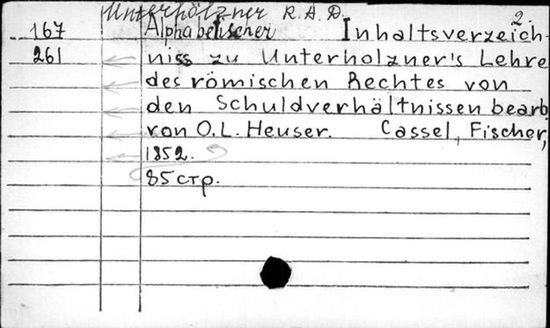 Unterholzner R. A. D. 2.
167 Alphabetischer Inhaltsverzeich-
261 niss zu Unterholzner's Lehre
des römischen Rechtes von
den Schuldverhältnissen bearb.
von O. L. Heuser. Cassel, Fischer,
1852.
85 стр.